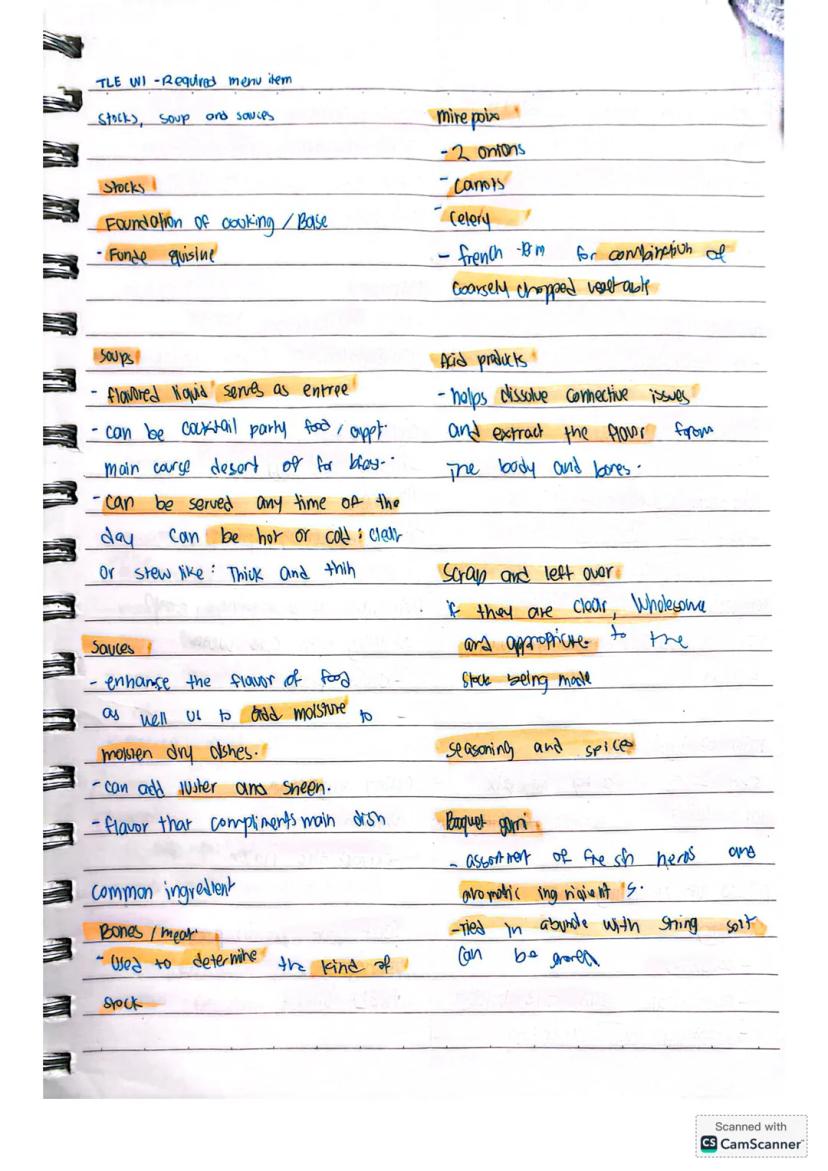 TLE W1 - Required menu item
Stocks, soup and sauces
Stocks
Foundation of cooking / Base
- Funde quisine
Soups
- flavored liquid serves as entree
- can be cocktail party food / appt.
main course desert of for
- can be served any time of the
day can be hot or cold: clear
or stew like: Thick and thin
Sauces
- enhance the flavor of food
as well us to add moisture to -
moisten dry dishes.
- can add luster and sheen.
- flavor that compliments main dish
common ingredient
Bones / meat
- Used to determine the kind of
stock
mire poix
- 2 onions
- Carrots
- Celery
- french for combinction of
coarsely chopped vegetable
Acid products
- helps dissolve connective issues
and extract the flavor from
The body and bones.
Scrap and left over
if they are clear, Wholesome
and appropricte to the
Stock being made
seasoning and spices
Boquet garni
- assortment of fresh herbs and
aromatic ingridient s.
- Tied in abundle with string
Can be
Scanned with
CS CamScanner